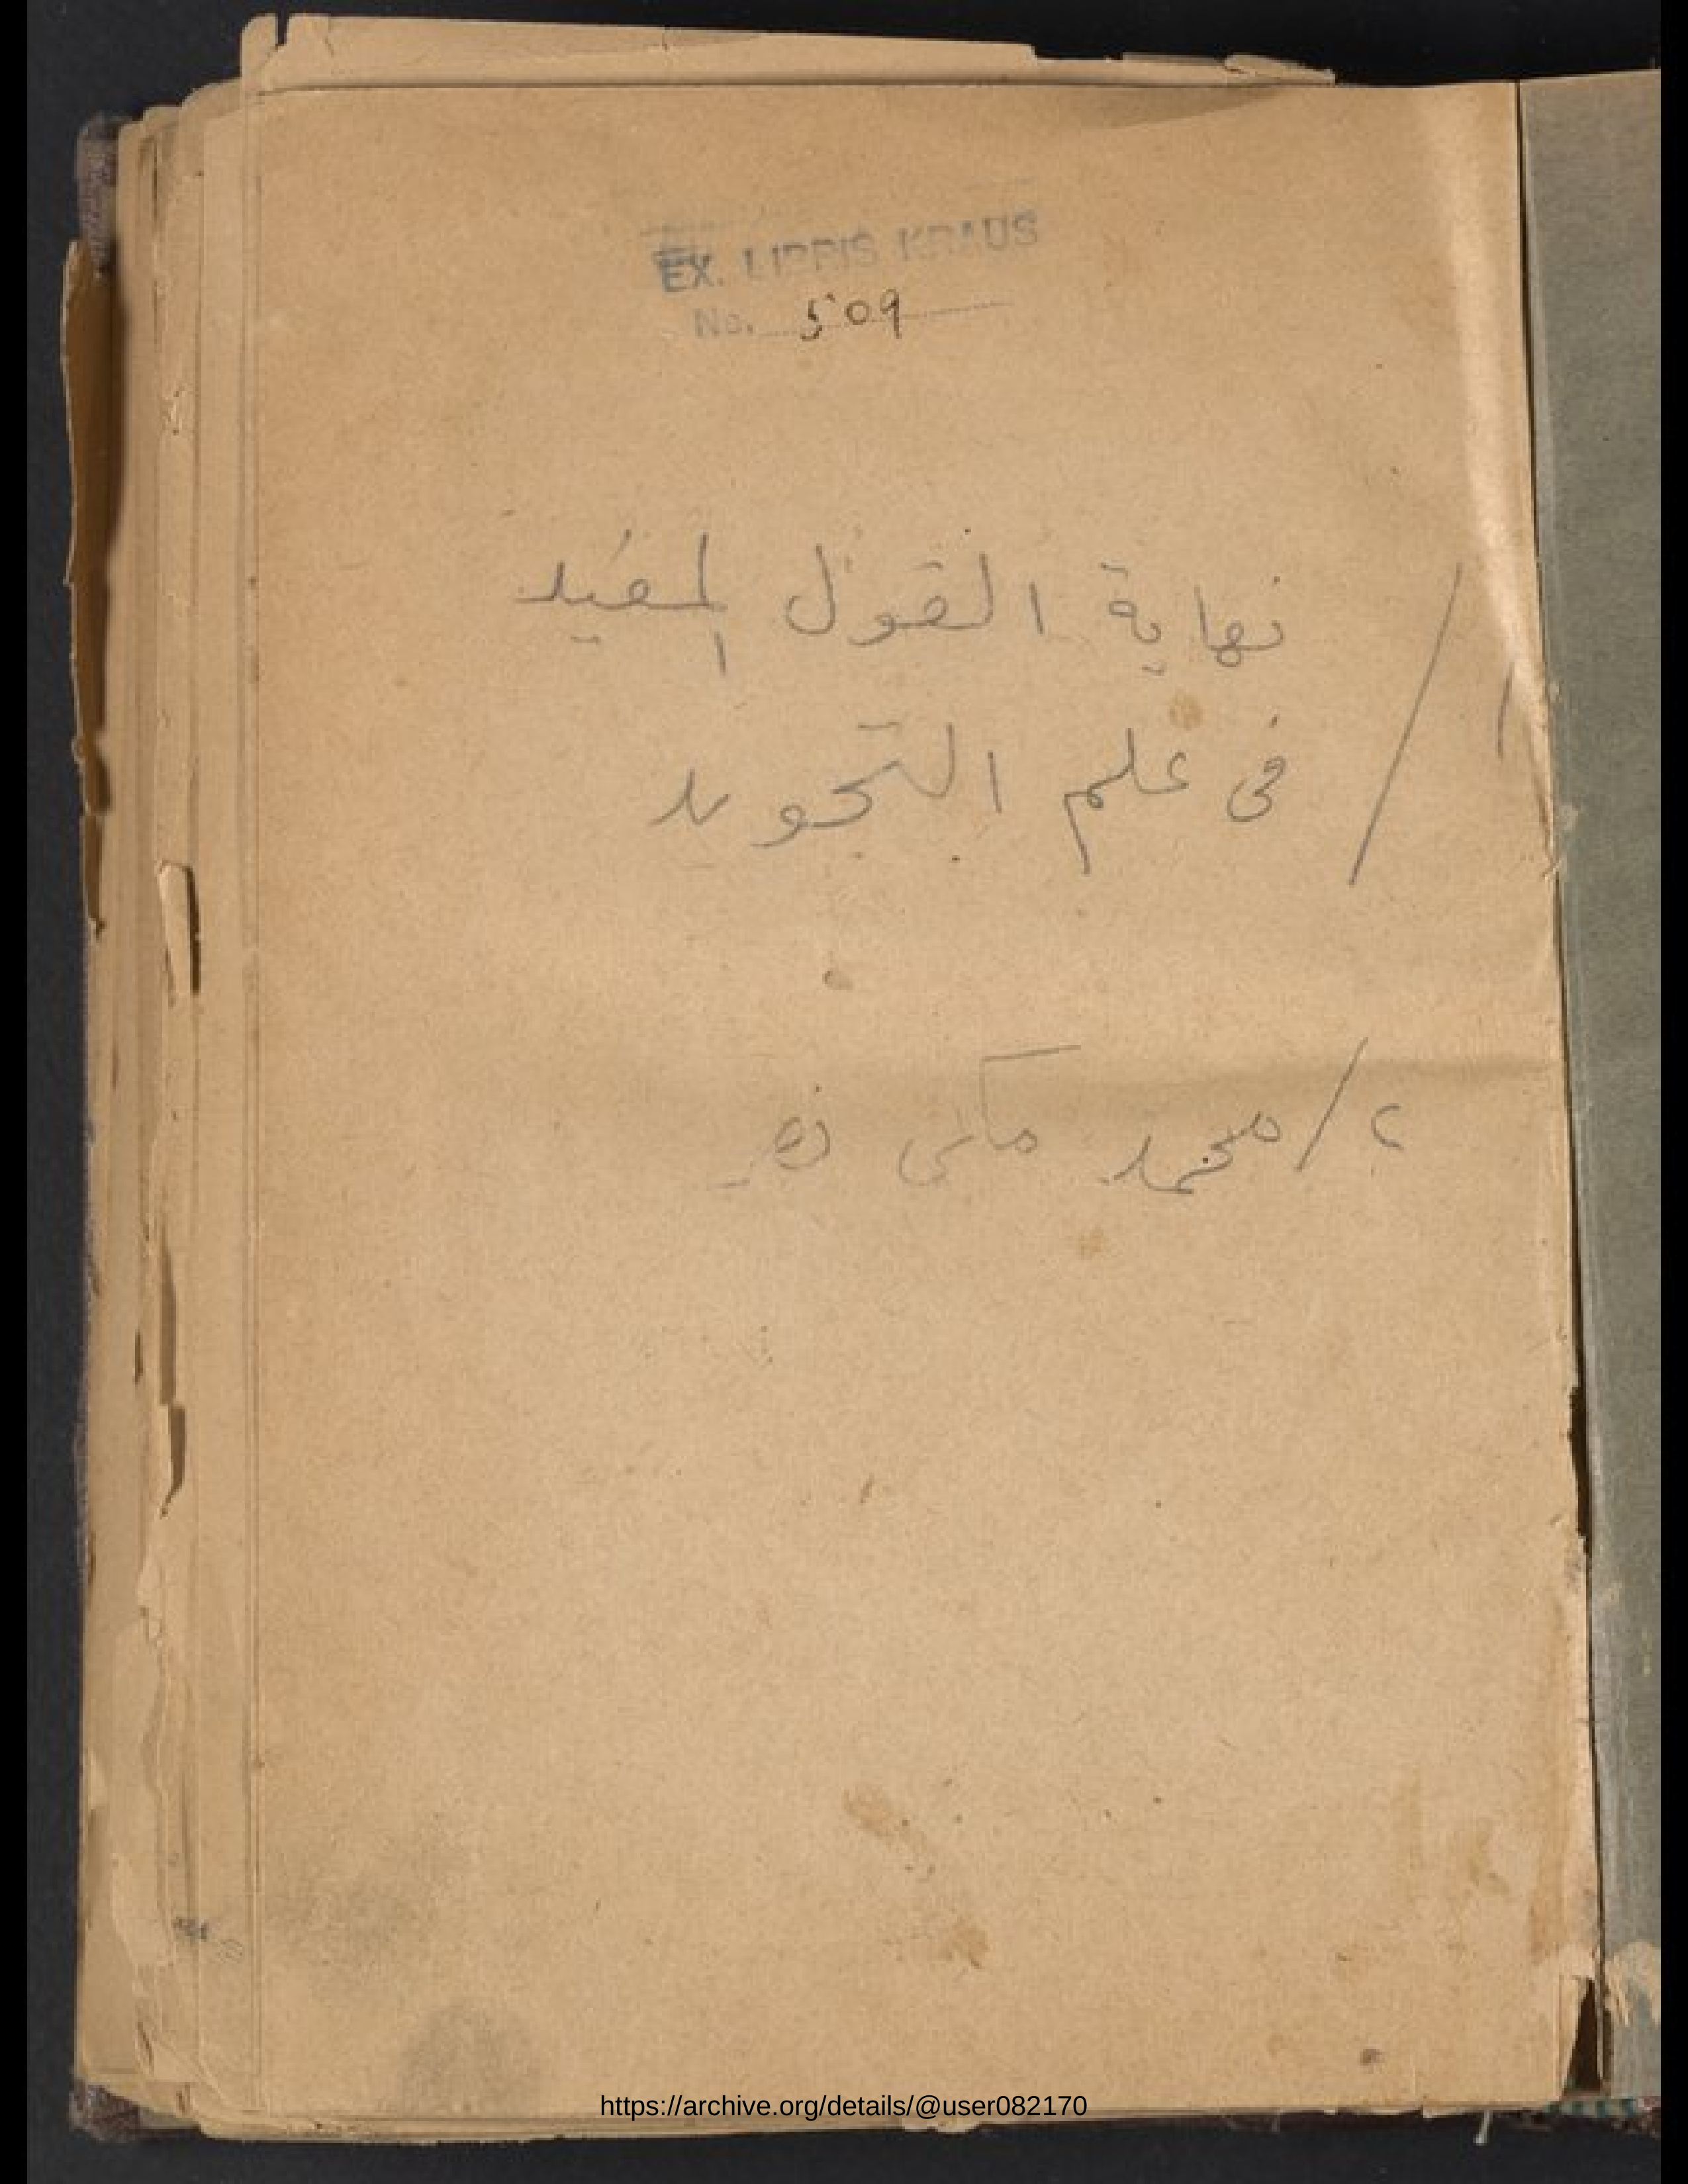 EX. LIBRIS KRAUS
No. 509
١/ نهاية القول المفيد
فى علم التجويد
٢/ محمد مكى نصر
https://archive.org/details/@user082170